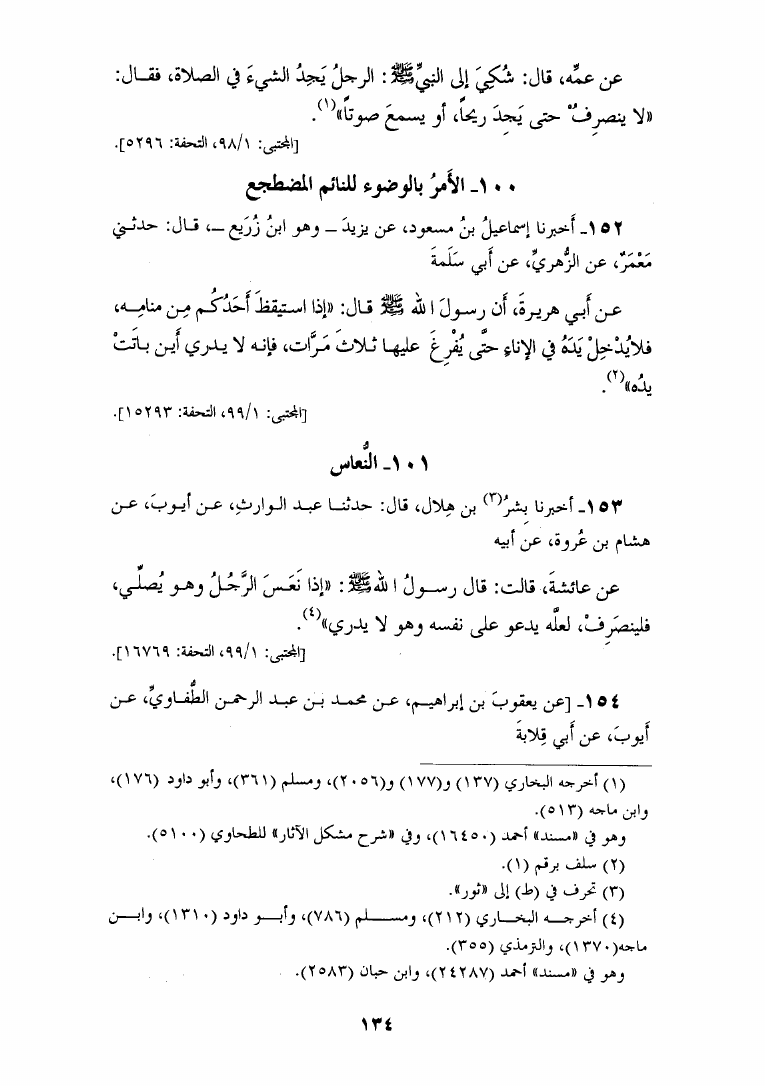 عن عمِّه، قال: شُكِيَ إلى النبيِّ ﷺ: الرجلُ يَجِدُ الشيءَ في الصلاة، فقال:
«لا ينصرِفْ حتى يَجِدَ ريحاً، أو يسمعَ صوتاً»(١).
[المجتبى: ٩٨/١، التحفة: ٥٢٩٦].
١٠٠- الأَمرُ بالوضوء للنائم المضطجع
١٥٢- أخبرنا إسماعيلُ بنُ مسعود، عن يزيدَ – وهو ابنُ زُرَيع –، قال: حدثني
مَعْمَرٌ، عن الزُّهريِّ، عن أبي سَلَمةَ
عن أبي هريرةَ، أن رسولَ الله ﷺ قال: «إذا استيقظَ أَحَدُكُم مِن منامِه،
فلا يُدْخِلْ يَدَهُ في الإناءِ حتَّى يُفْرِغَ عليها ثلاثَ مَرَّات، فإنه لا يدري أين باتَتْ
يدُه»(٢).
[المجتبى: ٩٩/١، التحفة: ١٥٢٩٣].
١٠١- النُّعاس
١٥٣- أخبرنا بِشرُ(٣) بن هِلال، قال: حدثنا عبد الوارثِ، عن أيوبَ، عن
هشام بن عُروة، عن أبيه
عن عائشةَ، قالت: قال رسولُ الله ﷺ: «إذا نَعَسَ الرَّجُلُ وهو يُصلِّي،
فلينصَرِفْ، لعلَّه يدعو على نفسه وهو لا يدري»(٤).
[المجتبى: ٩٩/١، التحفة: ١٦٧٦٩].
١٥٤- [عن يعقوبَ بن إبراهيم، عن محمد بن عبد الرحمن الطُّفاويِّ، عن
أيوبَ، عن أبي قِلابةَ
(١) أخرجه البخاري (١٣٧) و(١٧٧) و(٢٠٥٦)، ومسلم (٣٦١)، وأبو داود (١٧٦)،
وابن ماجه (٥١٣).
وهو في «مسند» أحمد (١٦٤٥٠)، وفي «شرح مشكل الآثار» للطحاوي (٥١٠٠).
(٢) سلف برقم (١).
(٣) تحرف في (ط) إلى «ثور».
(٤) أخرجه البخاري (٢١٢)، ومسلم (٧٨٦)، وأبو داود (١٣١٠)، وابن
ماجه(١٣٧٠)، والترمذي (٣٥٥).
وهو في «مسند» أحمد (٢٤٢٨٧)، وابن حبان (٢٥٨٣).
١٣٤